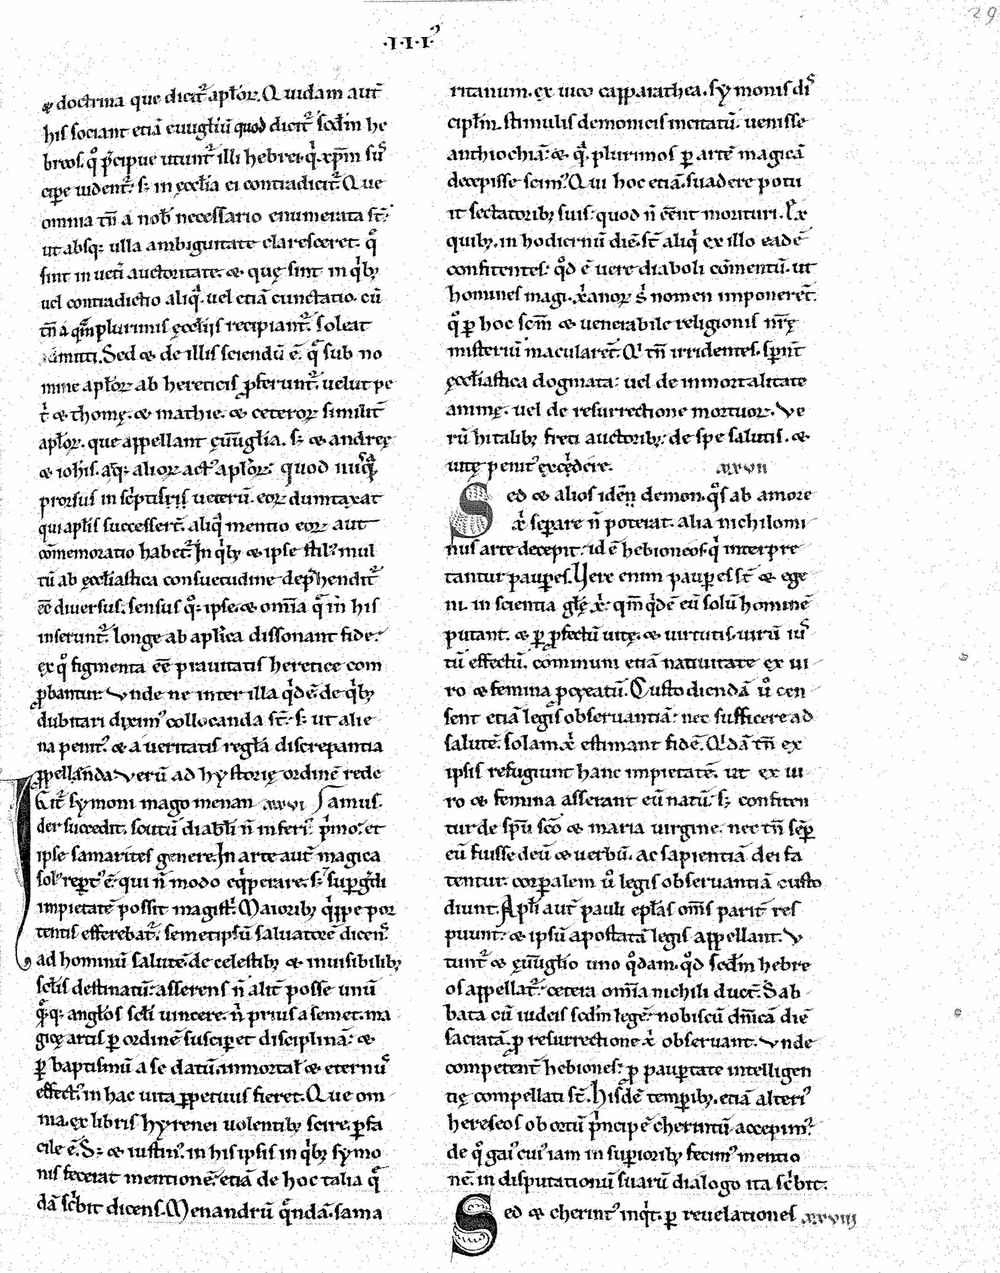 29
·I·I·I·
⁊ doctrina que dicit᷑ apl̄oꝝ. Quidam aut̄
his sociant etiā euuḡliū quod dicit᷑ sc̄dm he
breos. q̊ p̄cipue utunt᷑ illi hebrei. qͥ xp̄m
cipe uident᷑. sꝫ in ęccl̄ia ei contradicit᷑. Que
omnia tn̄ a nob necessario enumerata st̄.
ut absqꝫ ulla ambiguitate claresceret. q̊
sint in uet̄i auctoritate. ⁊ quę sint in qͥbꝫ
uel contradictio aliqͣ. uel etiā cunctatio. cū
tn̄ a qm̄plurimis ęccl̄iis recipiant᷑. soleat
āmitti. Sed ⁊ de illis sciendū ē. qͣ sub no
mine apl̄oꝝ ab hereticis ꝓferunt᷑. uelut pe
tͥ ⁊ thomę. ⁊ mathie. ⁊ ceteroꝝ similit̄
apl̄oꝝ. que appellant eūuglia. sꝫ ⁊ andreę
⁊ ioħis. aliorꝫ act᷒ apl̄oꝝ. quod nusqͣ
prorsus in sc̄ptis ueterū. eoꝝ dumtaxat
qui apl̄is successert̄. aliqͣ mentio eoꝝ aut
cōmemoratio habet᷑. In qͥbꝫ ⁊ ipse stil᷒ mul
tū ab ęccl̄iastica consuetudine dep̄hendit᷑
eē diuersus. sensus q̊qꝫ ipse. ⁊ om̄ia qͣ in his
inserunt᷑. longe ab apl̄ica dissonant fide.
ex q̊ figmenta eē prauitatis heretice com
ꝓbantur. Vnde ne inter illa qͥdē. de qͥbꝫ
dubitari dixim᷒ collocanda st̄. sꝫ ut alie
na penit᷒ ⁊ a ueritatis regl̄a discrepantia
ꝓpellanda. Verū ad hystorię ordinē rede
symoni mago menan xxvi Iamus.
der succedit. scutū diabl̄i n̄ inferi᷒ p̄mo. et
ipse samarites genere. In arte aut̄ magica
repert᷒ ē. qui n̄ modo eqͥperare. sꝫ supgͣdi
impietatē possit magistͥ. Maioribꝫ qͥppe por
tentis efferebat᷑. semetipsū saluatorē dicens
ad hominū salutē de celestibꝫ ⁊ inuisibilibꝫ
sc̄lis destinatū. asserens n̄ alit̄ posse unū
qͣqꝫ angl̄os sc̄li uincere. n̄ prius a semet. ma
gicę artis ꝑ ordinē susciperet disciplinā. ⁊
ꝑ baptismū a se datū. inmortal̄ ⁊ eternū
effect᷒. in hac uita ꝑpetuus fieret. Que om
nia. ex libris hyrenei uolentibꝫ scire. ꝑfa
cile ē. Sꝫ ⁊ iustin᷒. in his ipsis in qͥbꝫ symo
nis fecerat mentionē. etiā de hoc talia qͣ
dā sc̄bit dicens. Menandrū qͥndā. sama
ritanum. ex uico capparathea. symonis di
cipl̄m. stimulis demonicis incitatū. uenisse
anthiochiā. ⁊ qͣ plurimos ꝑ artē magicā
decepisse scim᷒. Qui hoc etiā. suadere potu
it sectatoribꝫ suis. quod n̄ eēnt morituri. Ex
quibꝫ. in hodiernū diē. st̄ aliqͥ ex illo eadē
confitentes. qd̄ ē uere diaboli cōmentū. ut
homines magi. xͥanoꝝ s nomen imponeret᷑.
q̊ ꝑ hoc scm̄ ⁊ uenerabile religionis nr̄ę
misteriū macularet᷑. Qͥ tn̄ irridentes. spnt̄
ęccl̄iastica dogmata. uel de inmortalitate
animę. uel de resurrectione mortuoꝝ. Ve
rū hi talibꝫ freti auctoribꝫ. de spe salutis. ⁊
uitę penit᷒ excedere. xxvii
Sed ⁊ alios idē demon. q̊s ab amore
xͥ separe n̄ poterat. alia nichilomi
nus arte decepit. id ē hebioneos. qͥ interpre
tantur pauperes. Vere enim pauperes st̄ ⁊ ege
ni. in scientia gl̄ę xͥ. qm̄ qͥdē eū solū hominē
putant. ⁊ ꝑ ꝓfectū uitę. ⁊ uirtutis. uirū ius
tū effectū. communi etiā natiuitate ex ui
ro ⁊ femina ꝓcreatū. Custodiendā ů cen
sent etiā legis obseruantiā. nec sufficere ad
salutē. solam xͥ estimant fidē. Qͥdā tn̄ ex
ipsis refugiunt hanc impietatē. ut ex ui
ro ⁊ femina asserant eū natū. sꝫ confiten
tur de sp̄u sc̄o ⁊ maria uirgine. nec tn̄ semꝑ
eū fuisse deū ⁊ uerbū. ac sapientiā dei fa
tentur. corꝑalem ů legis obseruantiā custo
diunt. Apl̄i aut̄ pauli epl̄as om̄s parit̄ res
puunt. ⁊ ipsū apostatā legis appellant. V
tunt᷑ ⁊ eūuglio uno qͦdam. qd̄ sc̄dm hebre
os appellat᷑. cetera om̄ia nichili duct̄. Sab
bata cū iudeis sc̄dm legē. nobiscū dn̄icā diē
sacratā. ꝓ resurrectione xͥ obseruant. Vnde
competent̄ hebiones. ꝓ pauꝑtate intelligen
tię compellati st̄. Hisdē temporibꝫ. etiā alteri᷒
hereseos obortū p̄ncipē cherintū accepim᷒.
de q̊ gai᷒ cui᷒ iam in supioribꝫ fecim᷒ mentio
nē. in disputationū suarū dialogo ita sc̄bit.
Sed ⁊ cherint᷒ inqͥt. ꝑ reuelationes xxviii